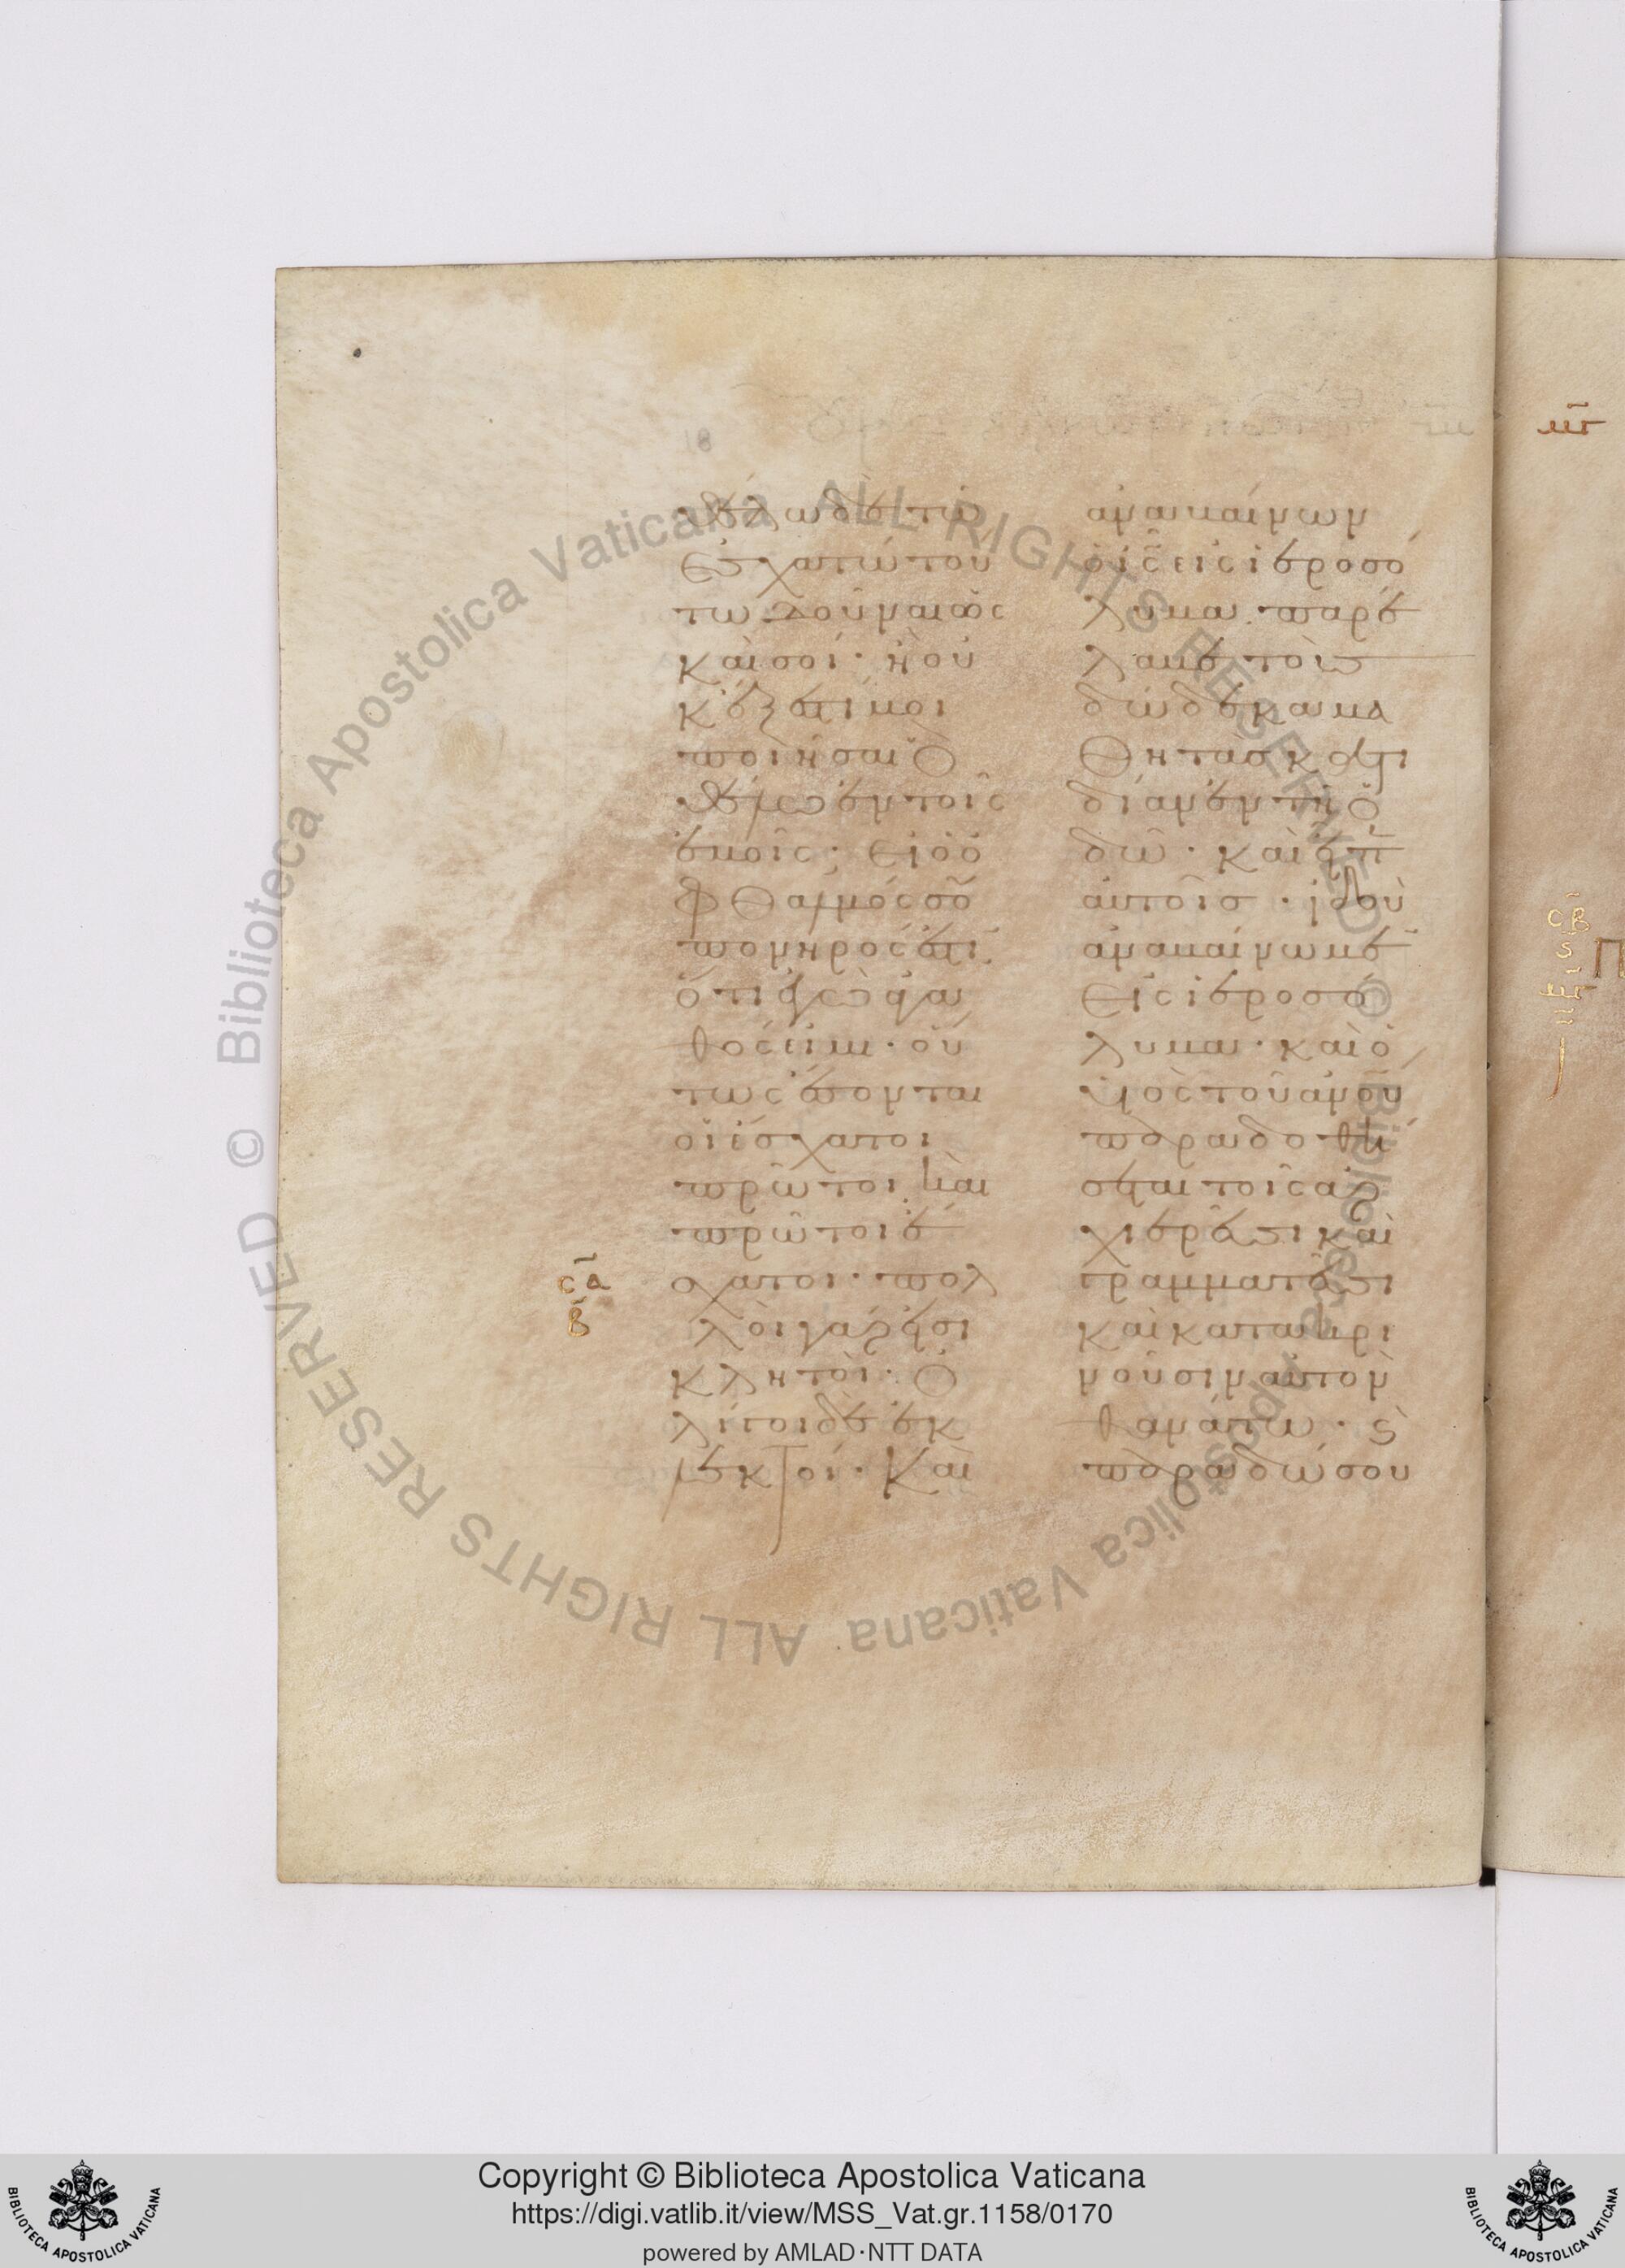 θέλω δὲ τῶ
ἐσχάτω τού
τω δοῦναι ὡς
καὶ σοί· ἢ οὐ
κ ἔξεστί μοι
ποιῆσαι ὃ
θέλω ἐν τοῖς
ἐμοῖς; εἰ ὁ ὀ
φθαλμός σου
πονηρός ἐστι
ὅτι ἐγὼ ἀγα
θός εἰμι· οὕ
τως ἔσονται
οἱ ἔσχατοι
πρῶτοι καὶ οἱ
πρῶτοι ἔ
σχατοι· πολ
λοὶ γάρ εἰσι
κλητοὶ· ὀ
λίγοι δὲ ἐκ
λεκτοί· Καὶ
σα
β
ἀναβαίνων
ὁ ις εἰς ἱεροσό
λυμα· παρέ
λαβε τοὺς
δώδεκα μα
θητὰς κατ ι
δίαν ἐν τῆ ὁ
δῶ· καὶ εἶπεν
αὐτοῖς· ἰδοὺ
ἀναβαίνομεν
εἰς ἱεροσό
λυμα· καὶ ὁ
υἱὸς τοῦ ἀνου
παραδοθή
σεται τοῖς ἀρ
χιερεῦσι καὶ
γραμματεῦσι
καὶ κατακρι
νοῦσιν αὐτὸν
θανάτω· καὶ
παραδώσου
σβ
Copyright © Biblioteca Apostolica Vaticana
https://digi.vatlib.it/view/MSS_Vat.gr.1158/0170
powered by AMLAD·NTT DATA
BIBLIOTECA APOSTOLICA VATICANA
BIBLIOTECA APOSTOLICA VATICANA
© Biblioteca Apostolica Vaticana ALL RIGHTS RESERVED © Biblioteca Apostolica Vaticana ALL RIGHTS RESERVED